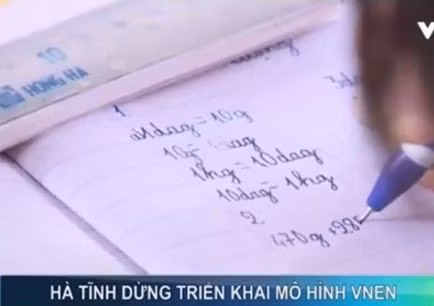 V
10
HONG HA
1
1dag = 10g
10g = 1dag
1hg = 10dag
10dag = 1hg
2
470g + 28
HÀ TĨNH DỪNG TRIỂN KHAI MÔ HÌNH VNEN